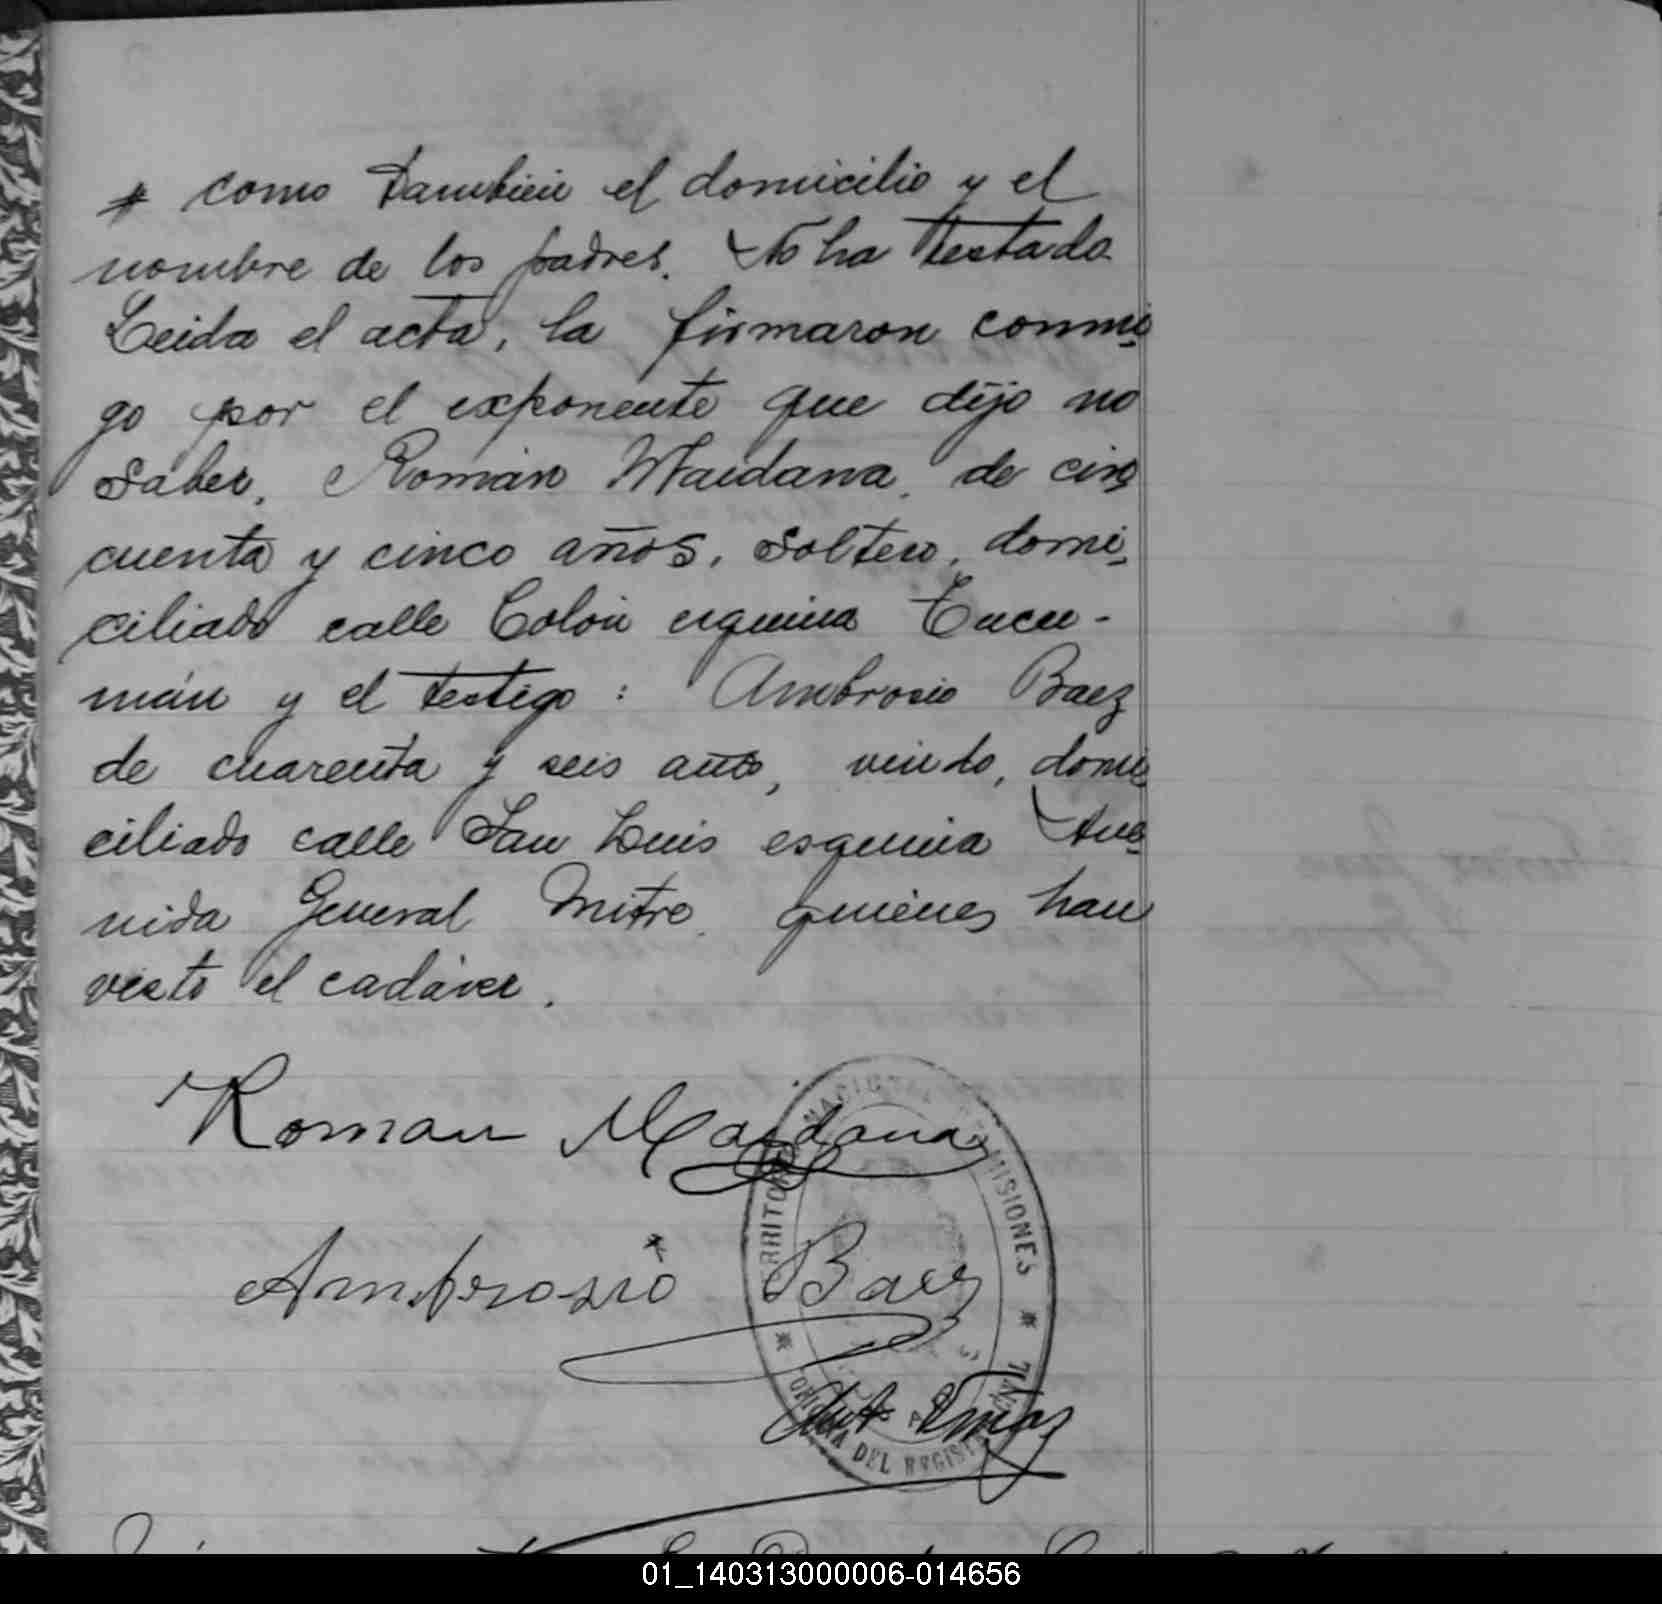 * como tambien el domicilio y el
nombre de los padres. No ha testado
Leida el acta, la firmaron conmi-
go por el exponente que dijo no
saber, Román Maidana, de cin
cuenta y cinco años, soltero, domi-
ciliado calle Colón esquina Tucu-
mán y el testigo: Ambrosio Baez
de cuarenta y seis años, viudo, domi
ciliado calle San Luis esquina Ave-
nida General Mitre, quienes han
visto el cadáver.
Roman Maidana
Ambrosio Baez
MISIONES
DEL REGISTRO
01_140313000006-014656